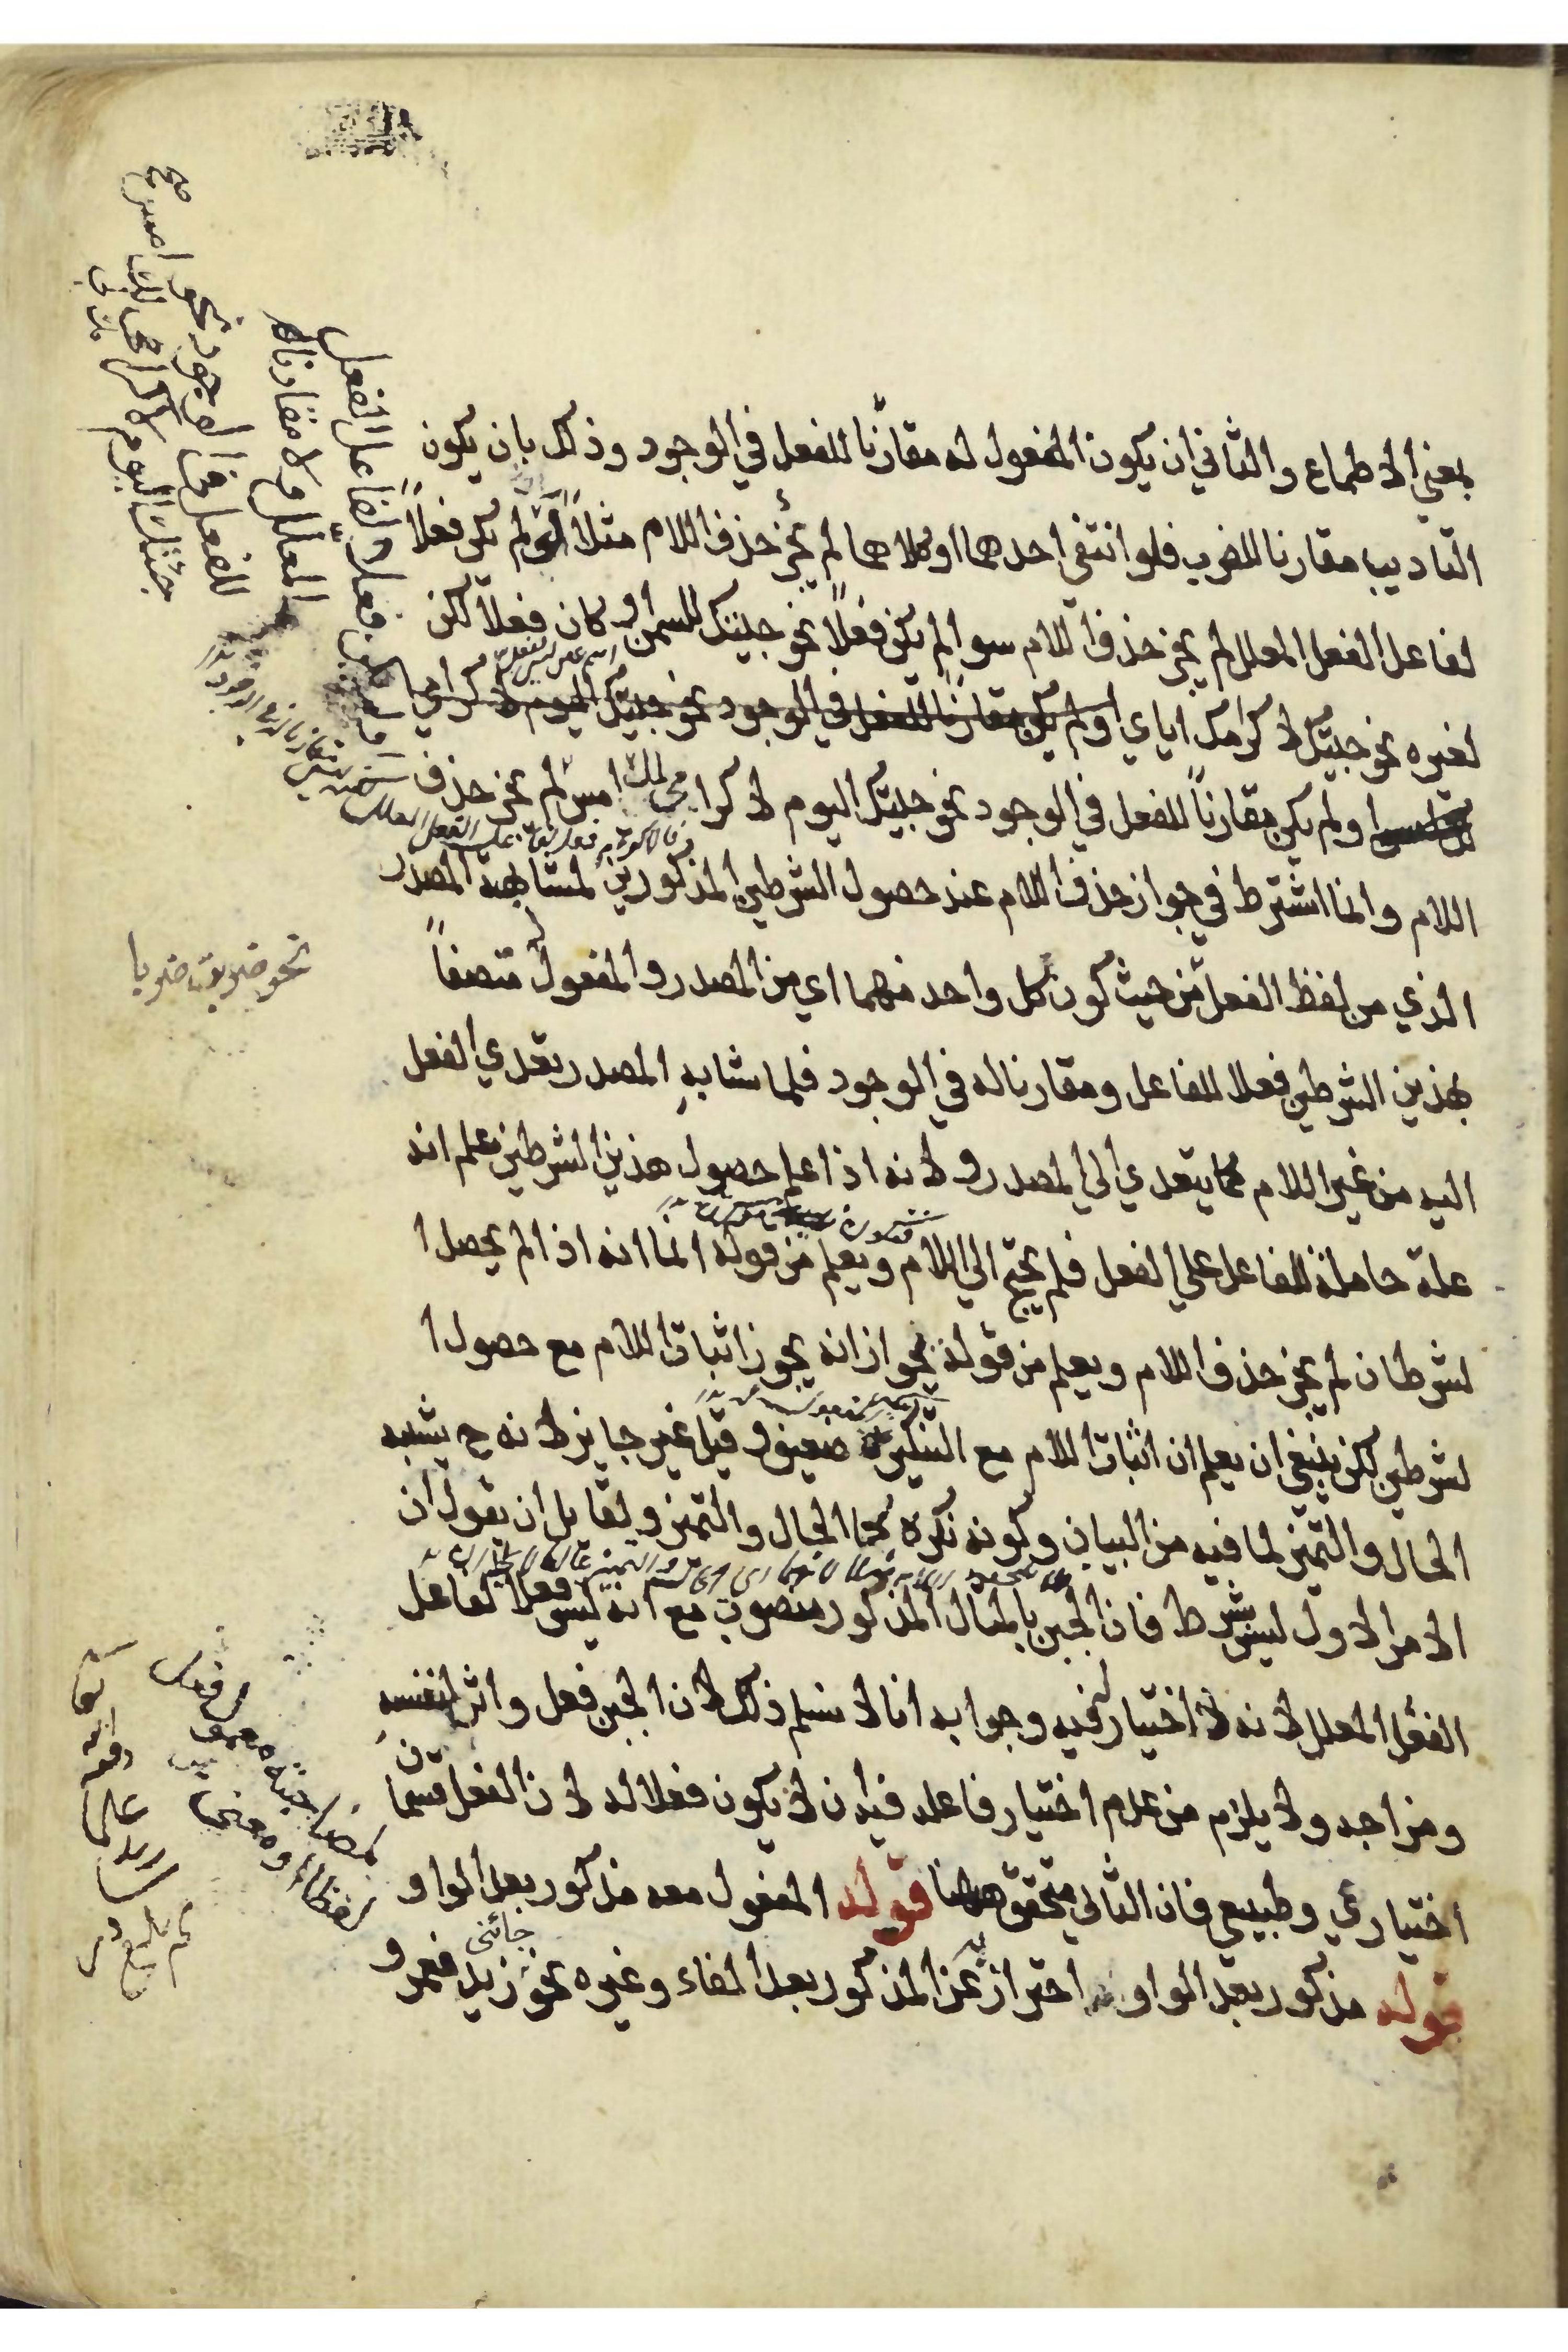 بمعني الاطماع والثاني ان يكون المفعول له مقارنا للفعل في الوجود وذلك بان يكون
التاديب مقارنا للضرب فلو انتفي احدهما او كلاهما لم يجز حذف اللام مثلا لو لم يكن فعلاً
لفاعل الفعل المعلل لم يجز حذف اللام سوا لم يكن فعلاً نحو جيتك للسمن او كان فعلاً لكن
لغيره نحو جيتك لاكرامك اياي او لم يكن مقارنا للفعل في الوجود نحو جيتك اليوم لاكرامي
او لم يكن مقارناً للفعل في الوجود نحو جيتك اليوم لاكرامي لك امس لم يجز حذف
اللام وانما اشترط في جواز حذف اللام عند حصول الشرطين المذكورين لمشابهة المصدر
الذي من لفظ الفعل من حيث كون كل واحد منهما اي من المصدر والمفعول له متصفاً
بهذين الشرطين فعلا للفاعل ومقارنا له في الوجود فلما شابه المصدر تعدي الفعل
اليه من غير اللام كما يتعدي الي المصدر ولانه اذا علم حصول هذين الشرطين علم انه
علة حاملة للفاعل علي الفعل فلم يحتج الي اللام ويعلم من قوله انما انه اذا لم يحصل ا
لشرطان لم يجز حذف اللام ويعلم من قوله يجواز انه يجوز اثبات اللام مع حصول ا
لشرطين لكن ينبغي ان يعلم ان اثبات اللام مع التنكير ضعيف وقيل غير جايز لانه ح يشبه
الحال والتميز لما فيه من البيان وكونه نكره كما الحال والتميز ولقايل ان يقول ان
الامر الاول ليس بشرط فان الجبن بالمثال المذكور منصوب مع انه ليس فعلا لفاعل
الفعل المعلل لانه لا اختيار له فيه وجوابه انا لا نسلم ذلك لان الجبن فعل واثر لنفسه
ومزاجه ولا يلزم من عدم اختيار فاعله فيه ان لا يكون فعلا له لان الفعل قسمان
اختياري وطبيعي فان الثاني متحقق ههنا قوله المفعول معه مذكور بعد الواو
قوله مذكور بعد الواو احتراز عن المذكور بعد الفاء وغيره نحو جائني زيد فعمرو
نحو ضربت ضربا
لمصاحبته معمول فعل
لفظا او معنى